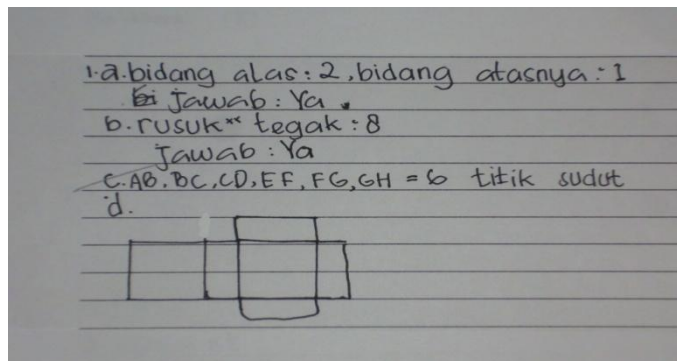 1.a.bidang alas : 2, bidang atasnya : 1
Jawab : Ya.
b. rusuk" tegak : 8
Jawab : Ya
C. AB, BC, CD, EF, FG, GH = 6 titik sudut
d.